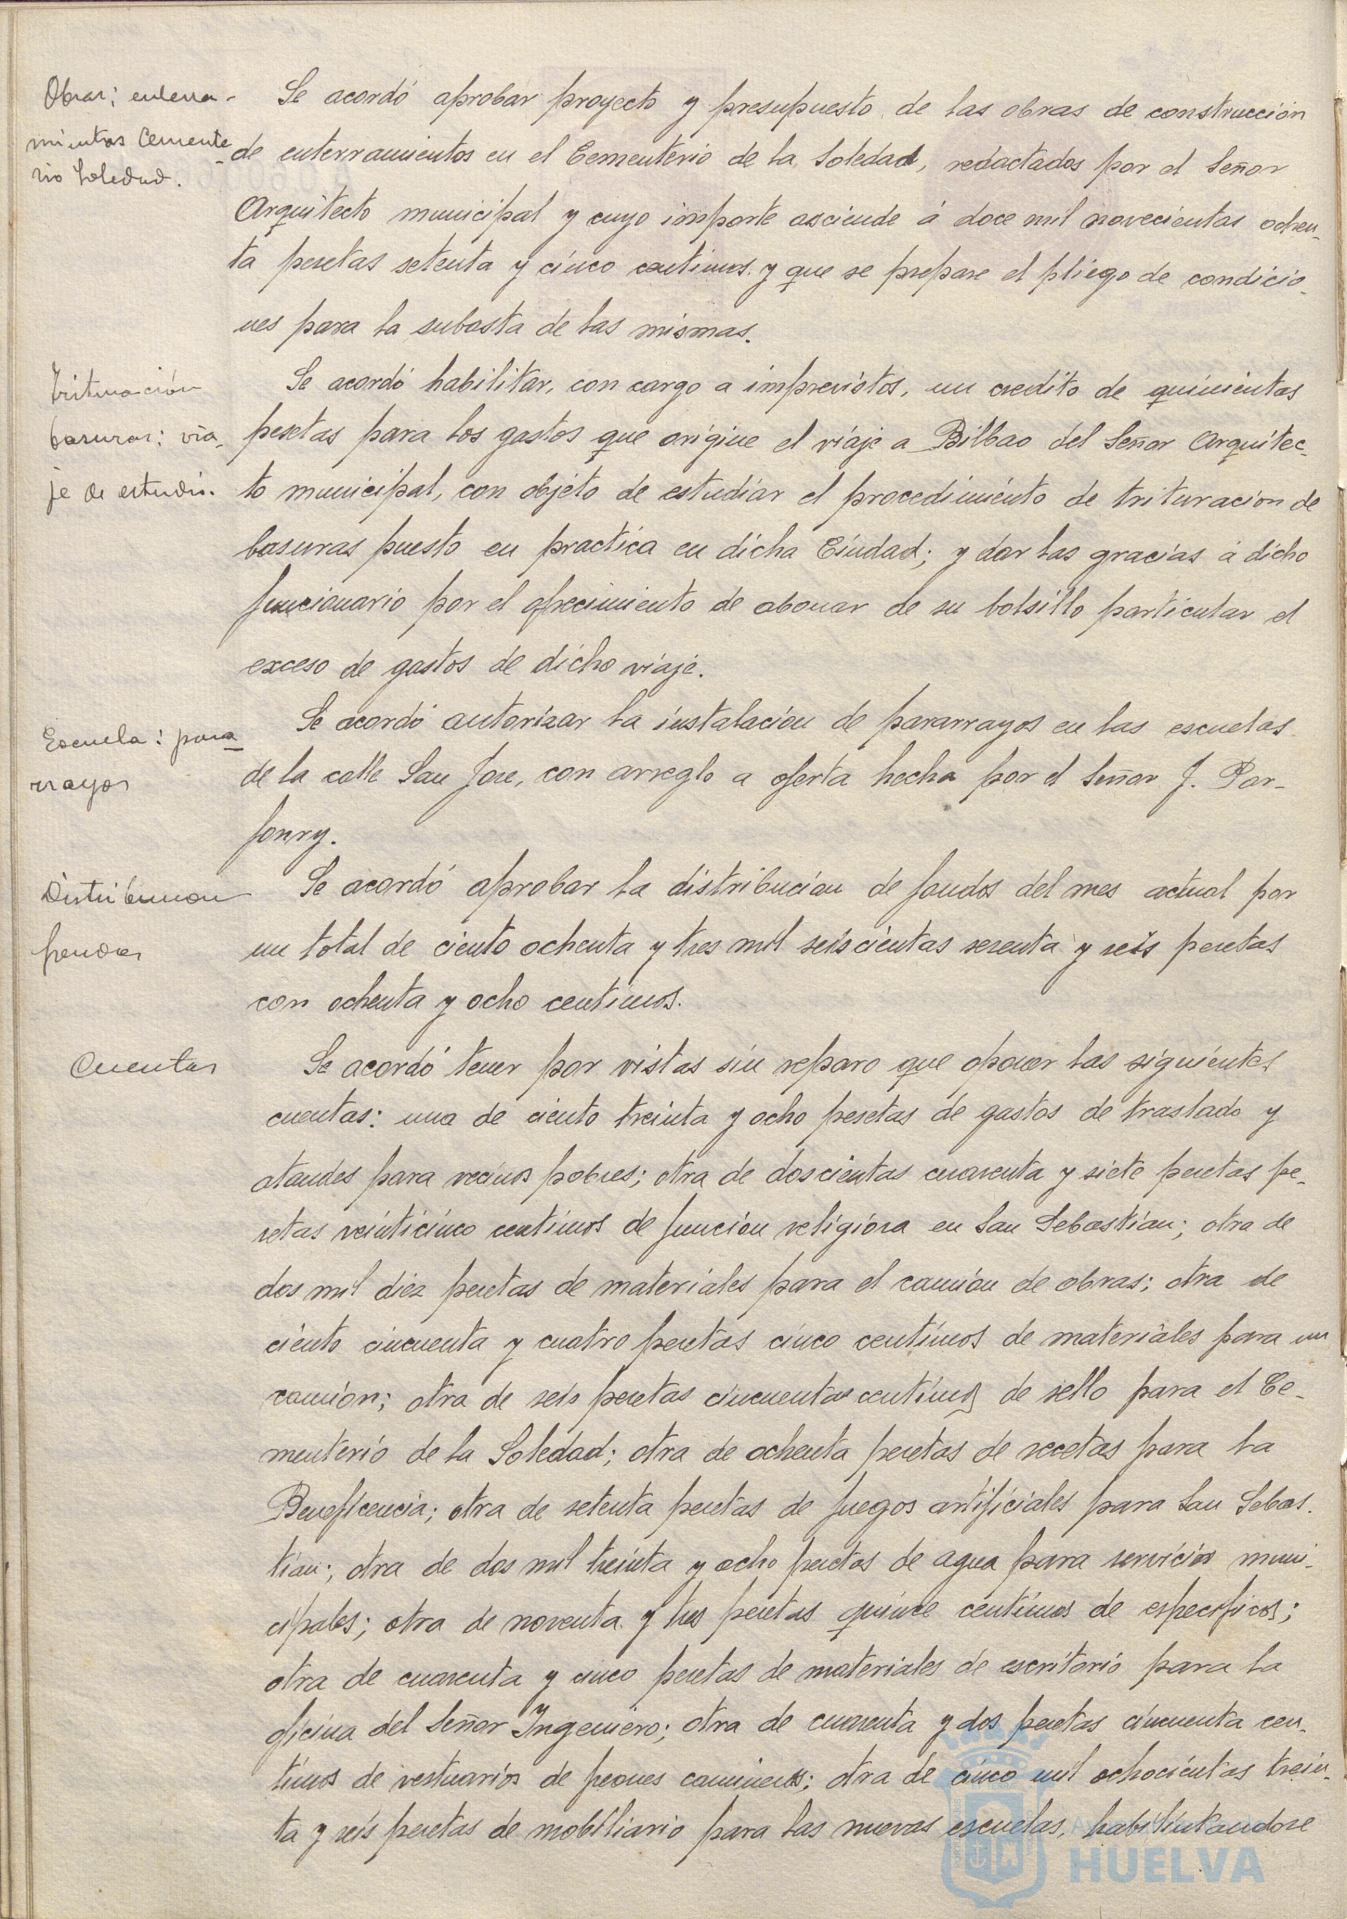 Obras; enterra-
mientos Cemente-
rio Soledad.
Se acordó aprobar proyecto y presupuesto de las obras de construcción
de enterramientos en el Cementerio de la Soledad, redactados por el Señor
Arquitecto municipal y cuyo importe asciende á doce mil novecientas ochen-
ta pesetas setenta y cinco centimos. y que se prepare el pliego de condicio-
nes para la subasta de las mismas.
Trituración
basuras; via-
je de estudio.
Se acordó habilitar, con cargo a imprevistos, un credito de quinientas
pesetas para los gastos que origine el viaje a Bilbao del Señor Arquitec-
to municipal, con objeto de estudiar el procedimiento de trituracion de
basuras puesto en practica en dicha Ciudad; y dar las gracias á dicho
funcionario por el ofrecimiento de abonar de su bolsillo particular el
exceso de gastos de dicho viaje.
Escuela: para-
rrayos
Se acordó autorizar la instalación de pararrayos en las escuelas
de la calle San Jose, con arreglo a oferta hecha por el Señor J. Par-
fonry.
Distribucion
fondos
Se acordó aprobar la distribución de fondos del mes actual por
un total de ciento ochenta y tres mil seiscientas sesenta y seis pesetas
con ochenta y ocho centimos.
Cuentas
Se acordó tener por vistas sin reparo que oponer las siguientes
cuentas: una de ciento treinta y ocho pesetas de gastos de traslado y
ataudes para vecinos pobres; otra de doscientas cuarenta y siete pesetas pe-
setas veinticinco centimos de función religiosa en San Sebastián; otra de
dos mil diez pesetas de materiales para el camión de obras; otra de
ciento cincuenta y cuatro pesetas cinco centimos de materiales para un
camión; otra de seis pesetas cincuenta centimos de sello para el Ce-
menterio de la Soledad; otra de ochenta pesetas de recetas para la
Beneficencia; otra de setenta pesetas de fuegos artificiales para San Sebas-
tian; otra de dos mil treinta y ocho pesetas de agua para servicios muni-
cipales; otra de noventa y tres pesetas quince centimos de especificos;
otra de cuarenta y cinco pesetas de materiales de escritorio para la
oficina del Señor Ingeniero; otra de cuarenta y dos pesetas cincuenta cen-
timos de vestuarios de peones camineros; otra de cinco mil ochocientas trein-
ta y seis pesetas de mobiliario para las nuevas escuelas, habilitandose
HUELVA